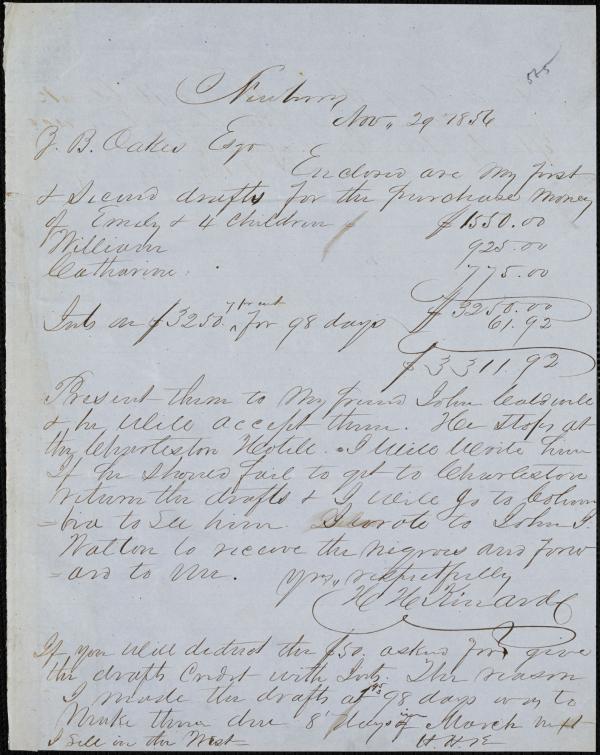 525
Newberry
Nov,, 29 1856
Z. B. Oakes Esqr
Enclosed are my first
& Second drafts for the purchase money
of Emily & 4 Children $1550.00
William 925.00
Catharine 775.00
$3250.00
Ints on $3250. 7 pr cent for 98 days 61.92
$3311.92
Present them to my friend John Caldwell
& he will accept them. He stops at
the Charleston Hotell. I will write him
If he should fail to get to Charleston
return the drafts & I will go to Colum
=bia to see him. I wrote to John J.
Watton to receive the negroes and forw
=ard to me.
Yrs,, respectfully
H H Kinard
If you will deduct the $50. asked for give
the drafts Credit with Ints. The reason
I made the drafts at 98 days was to
make them due 8th days of March next
I sell in the West= H.H.K